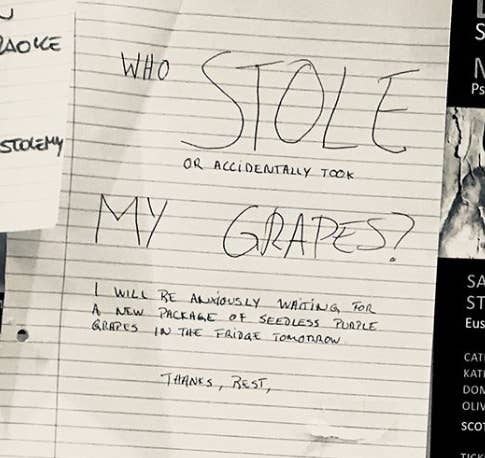 AOKE
STOLEMY
WHO STOLE
OR ACCIDENTALLY TOOK
MY GRAPES?
I WILL BE ANXIOUSLY WAITING FOR
A NEW PACKAGE OF SEEDLESS PURPLE
GRAPES IN THE FRIDGE TOMORROW
THANKS, BEST,
S
N
Ps
SA
ST
Eus
CAT
KATI
DON
OLIV
SCOT
TICK